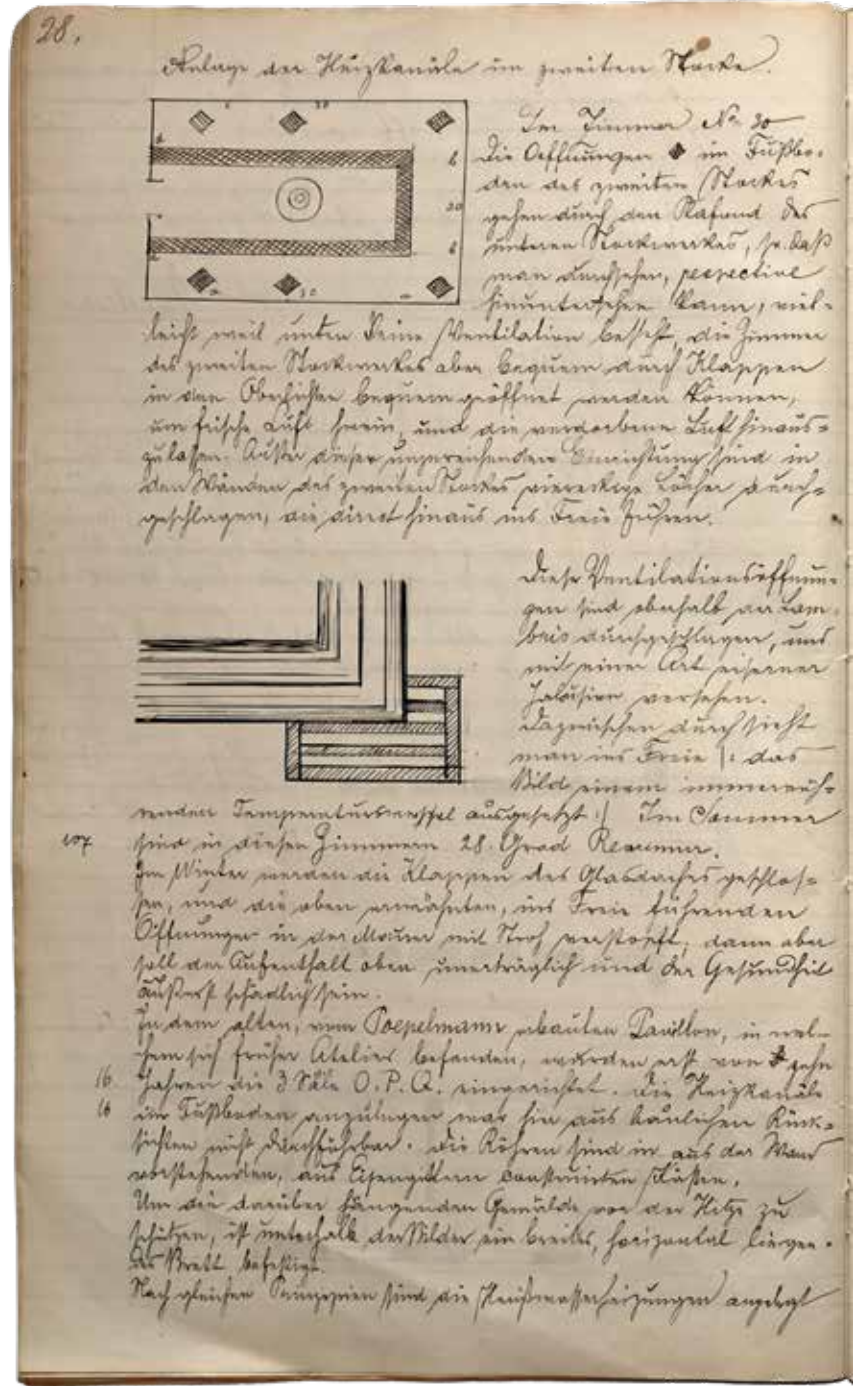 28.
Anlage der Heizkanäle im zweiten Stocke.
Im Zimmer No 30
die Oeffnungen im Fußbo-
den des zweiten Stockes
gehen durch den Plafond des
unteren Stockwerkes, so daß
man durchsehen, respective
hinuntersehen kann, viel-
leicht weil unten keine Ventilation besteht, die Zimmer
des zweiten Stockwerkes aber bequem durch Klappen
in den Oberlichten bequem geöffnet werden können,
um frische Luft herein, und die verdorbene Luft hinaus-
zulassen. Außer dieser unzureichenden Einrichtung sind in
den Wänden des zweiten Stockes viereckige Löcher durch-
geschlagen, die direct hinaus ins Freie führen.
Diese Ventilationsöffnun-
gen sind oberhalb der Lam-
bris durchgeschlagen, und
mit einer Art eiserner
Jalousien versehen.
Dazwischen durch sieht
man ins Freie |: das
Bild einem immerwäh-
renden Temperaturwechsel ausgesetzt :| Im Sommer
sind in diesen Zimmern 28. Grad Reaumur.
Im Winter werden die Klappen des Glasdaches geschlos-
sen, und die oben erwähnten, ins Freie führenden
Öffnungen in der Mauer mit Stroh verstopft; dann aber
soll der Aufenthalt oben unerträglich und der Gesundheit
äußerst schädlich sein.
In dem alten, vom Poepelmann erbauten Pavillon, in wel-
chem sich früher Ateliers befanden, wurden erst vor zehn
16. Jahren die 3 Säle O. P. Q. eingerichtet. Die Heizkanäle
16 im Fußboden anzulegen war hier aus baulichen Rück-
sichten nicht durchführbar. Die Röhren sind in aus der Wand
vorstehenden, aus Eisengittern construirten Kästen.
Um die darüber hängenden Gemälde vor der Hitze zu
schützen, ist unterhalb der Bilder ein breites, horizontal liegen-
des Brett befestigt.
Nach gleichen Prinzipien sind die Heißwasserheizungen angelegt